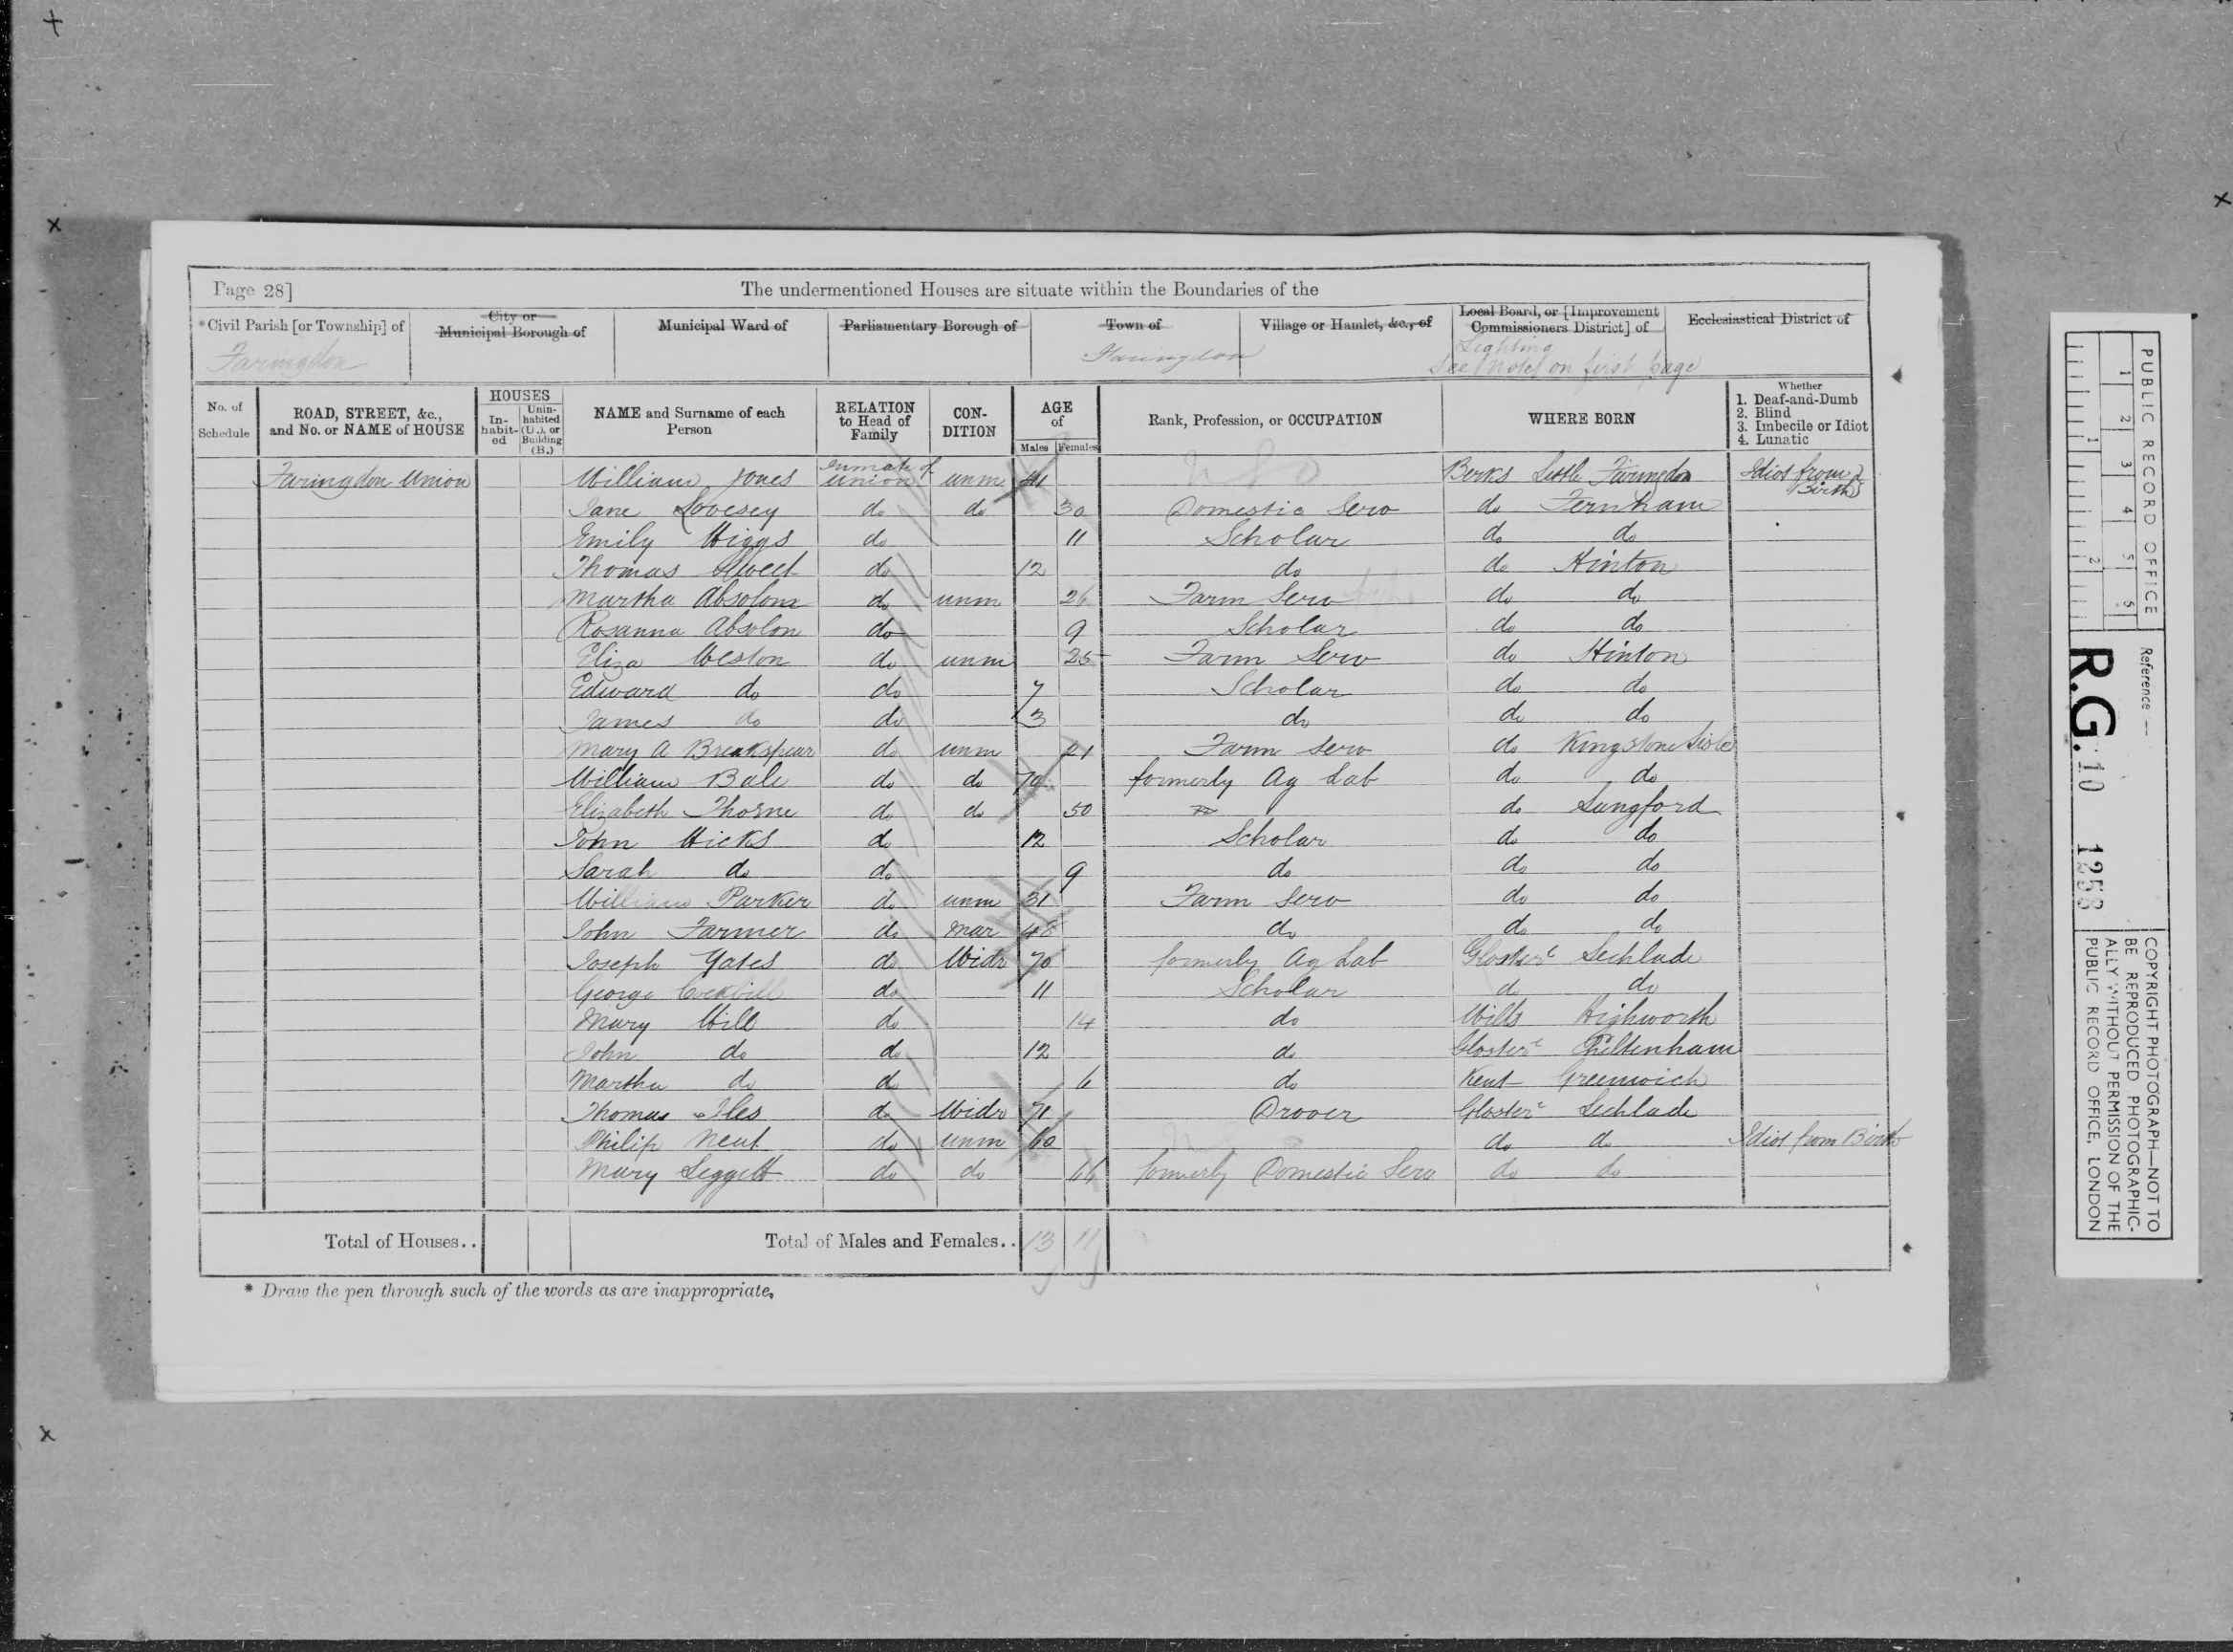 Page 28] The undermentioned Houses are situate within the Boundaries of the
*Civil Parish [or Township] of City or Municipal Borough of Municipal Ward of Parliamentary Borough of Town of Village or Hamlet, &c., of Local Board, or [Improvement Commissioners District] of Ecclesiastical District of
Faringdon Faringdon Lighting
See Note on first page
No. of Schedule ROAD, STREET, &c., and No. or NAME of HOUSE HOUSES In-habit-ed Unin-habited (U.), or Building (B.) NAME and Surname of each Person RELATION to Head of Family CON-DITION AGE of Males Females Rank, Profession, or OCCUPATION WHERE BORN Whether 1. Deaf-and-Dumb 2. Blind 3. Imbecile or Idiot 4. Lunatic
Faringdon Union William Jones Inmate of Union unm 41 Berks Little Faringdon Idiot from Birth
Jane Lovesey do do 30 Domestic Serv do Fernham
Emily Higgs do 11 Scholar do do
Thomas do 12 do do Hinton
Martha Absolom do unm 26 Farm Serv do do
Rosanna Absolon do 9 Scholar do do
Eliza Weston do unm 25 Farm Serv do Hinton
Edward do do 7 Scholar do do
James do do 3 do do do
Mary A Breakspear do unm 21 Farm Serv do Kingstone Lisle
William Bale do do formerly Ag Lab do do
Elizabeth Thorne do do 50 do Langford
John Hicks do 12 Scholar do do
Sarah do do 9 do do do
William Parker do unm 31 Farm Serv do do
John Farmer do mar 48 do do do
Joseph Yates do Widr 70 formerly Ag Lab Glosterc Lechlade
George do 11 Scholar do do
Mary Will do 14 do Wilts Highworth
John do do 12 do Glosterc Cheltenham
Martha do do 6 do Kent Greenwich
Thomas Iles do Widr 71 Drover Glosterc Lechlade
Philip Neut do unm 60 do do Idiot from Birth
Mary Leggett do do 66 formerly Domestic Serv do do
Total of Houses.. Total of Males and Females.. 13 11
* Draw the pen through such of the words as are inappropriate.
PUBLIC RECORD OFFICE
1 2 3 4 5 6
1 2
Reference —
R.G. 10 1258
COPYRIGHT PHOTOGRAPH—NOT TO
BE REPRODUCED PHOTOGRAPHIC-
ALLY WITHOUT PERMISSION OF THE
PUBLIC RECORD OFFICE, LONDON